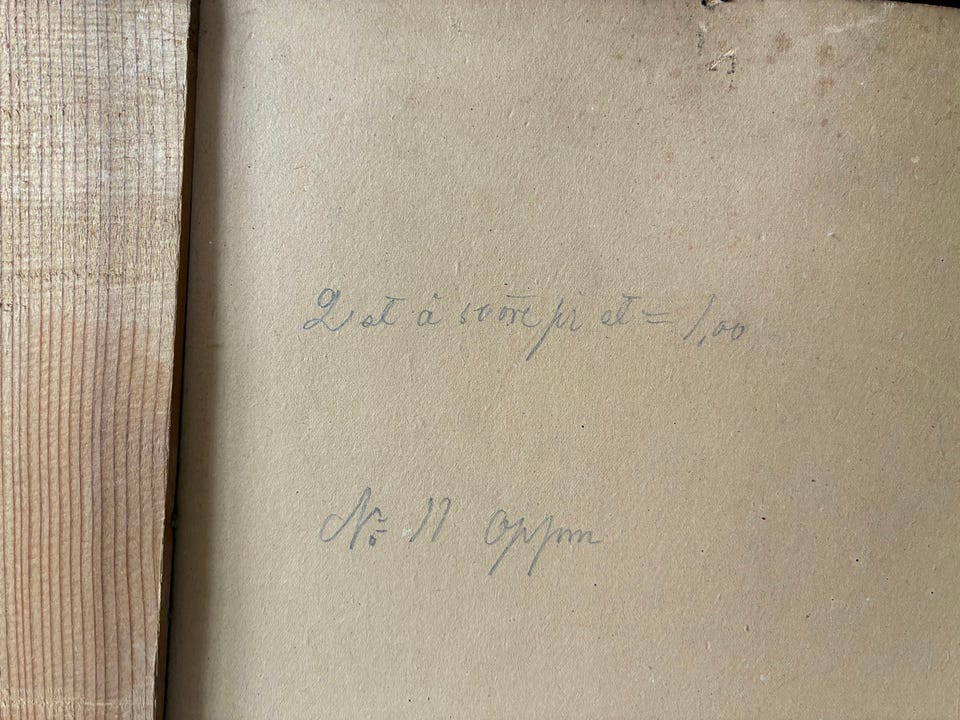 2 st à 50 öre pr st = 1,00
No 11